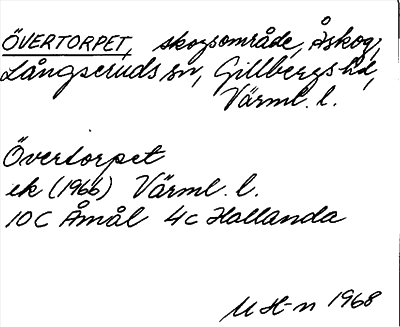 ÖVERTORPET, skogsområde, Åskog,
Långseruds sn, Gillbergs hd,
Värml. l.
Övertorpet
ek (1966) Värml. l.
10C Åmål 4c Hallanda
M H-n 1968